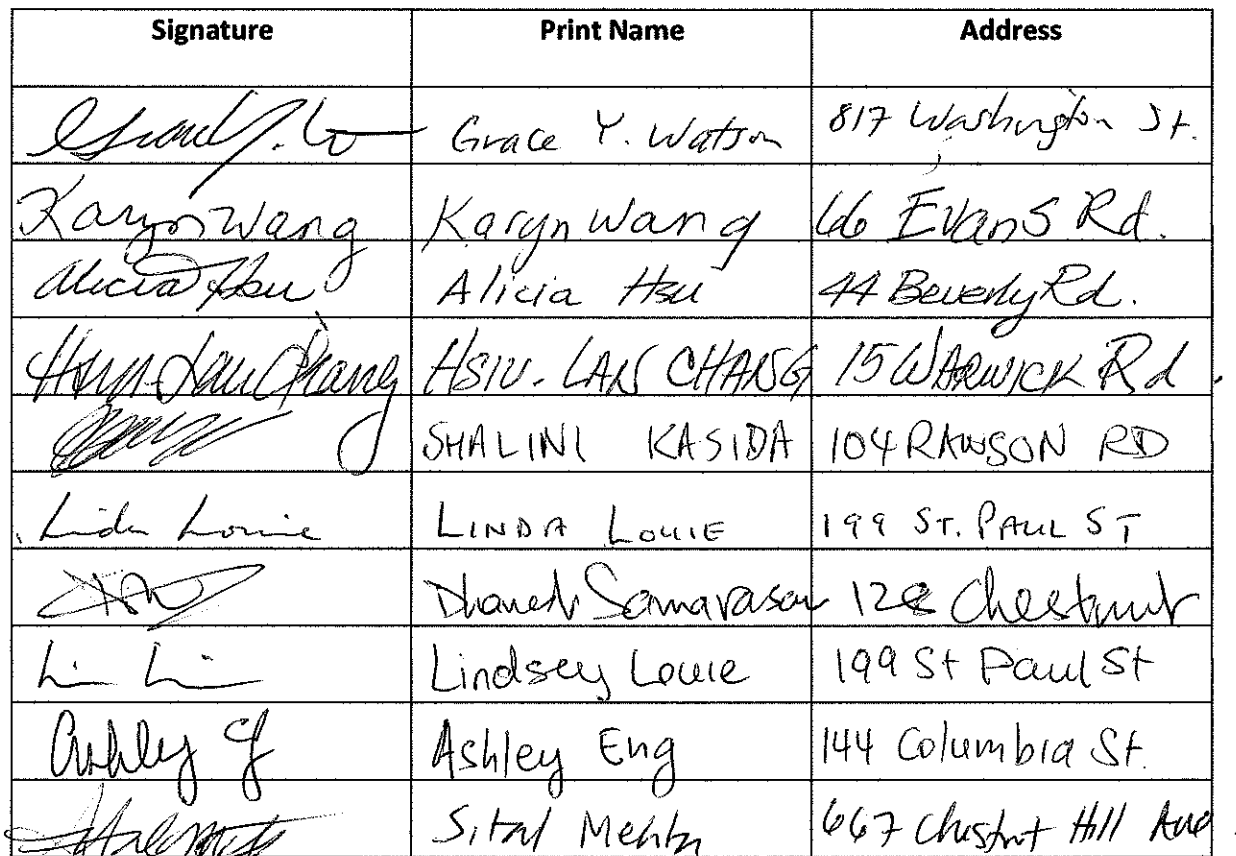 Signature Print Name Address
Grace Y. Watson 817 Washington St.
Karyn Wang Karyn Wang 66 Evans Rd.
Alicia Hsu Alicia Hsu 44 Beverly Rd.
Hsiu-Lan Chang HSIU-LAN CHANG 15 WARWICK Rd.
SHALINI KASIDA 104 RAWSON RD
Linda Louie LINDA LOUIE 199 ST. PAUL ST
Chestnut
Lindsey Louie 199 St Paul St
Ashley Ashley Eng 144 Columbia St.
Sital Mehta 667 Chestnut Hill Ave